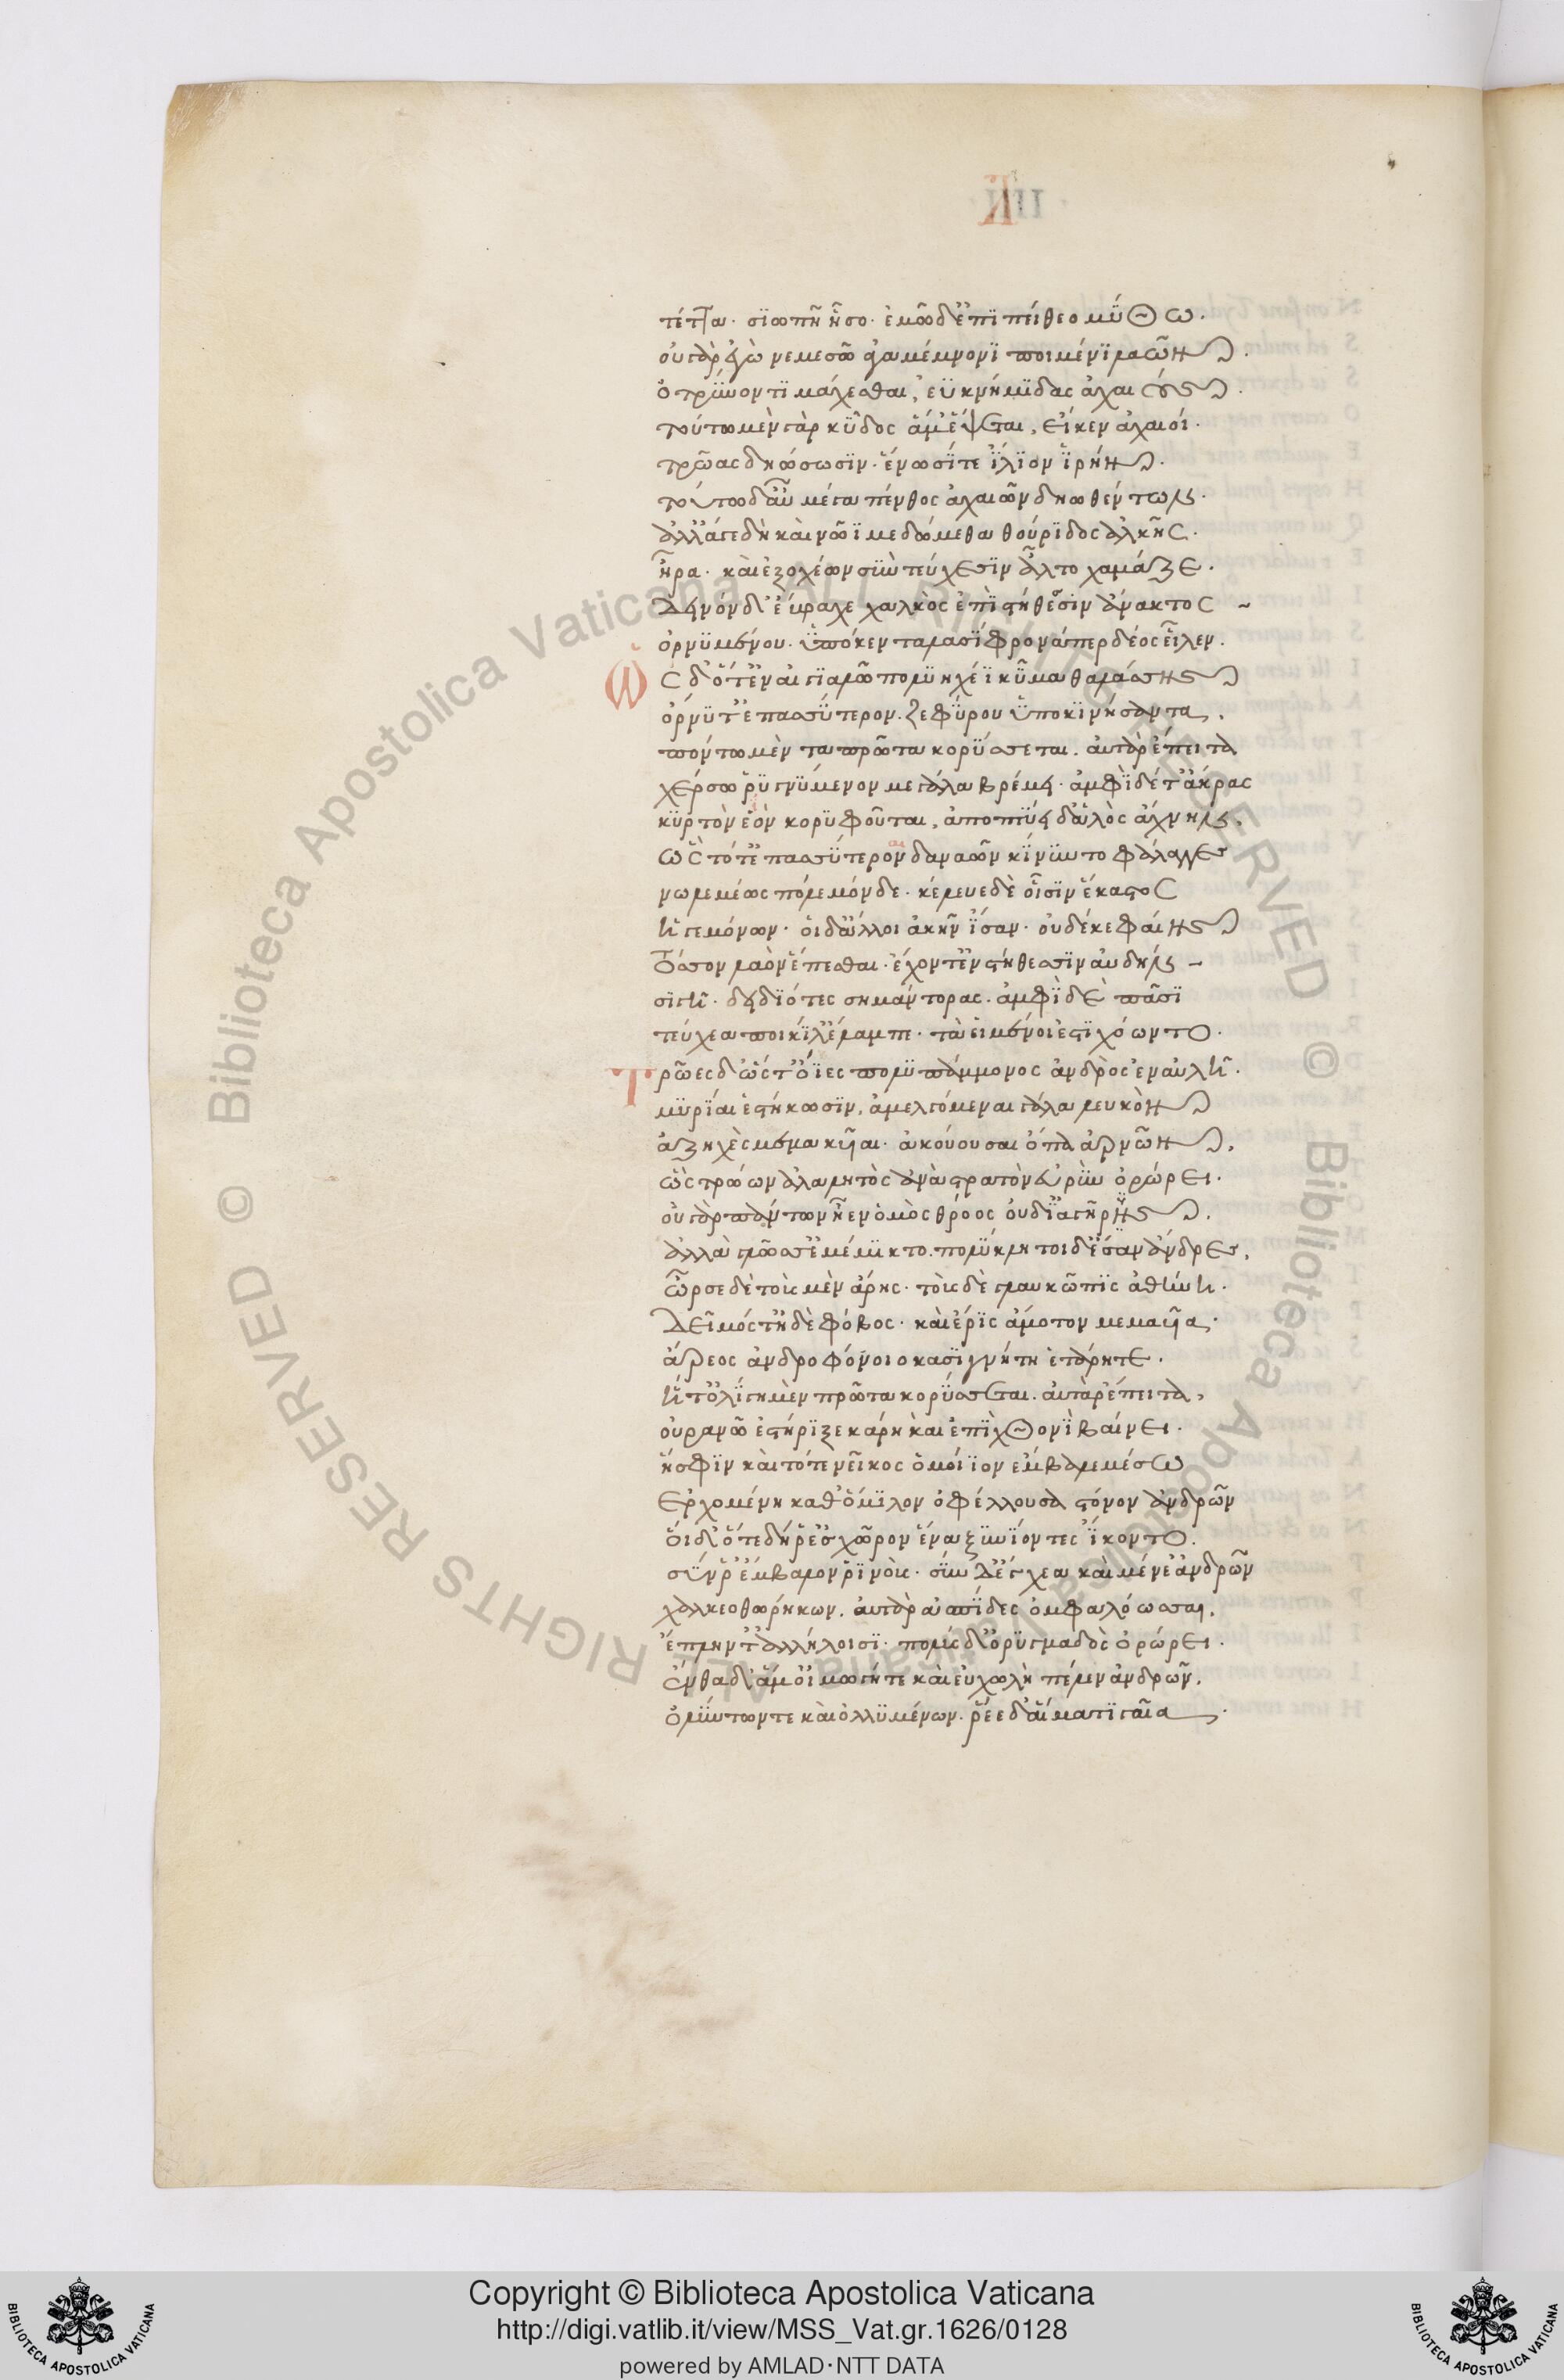 τέττα· σϊωπῆ ἧσο· ἐμῶ δ' ἐπϊπείθεο μύθω.
οὐ γὰρ ἐγὼ νεμεσῶ ἀγαμέμνονϊ ποιμένϊ λαῶν.
ὀτρύνοντϊ μάχεσθαι, ἐϋκνήμϊδας ἀχαιούς.
τούτω μὲν γὰρ κῦδος ἅμ' ἕψεται, εἴκεν ἀχαιοί·
τρῶας δηώσωσϊν· ἕλωσί τε ἴλϊον ἱρήν.
τούτω δ' αὖ μέγα πένθος ἀχαιῶν δηωθέντων.
ἀλλ' ἄγε δὴ καὶ νῶϊ μεδώμεθα θούρϊδος ἀλκῆς.
ἦ ῥα· καὶ ἐξ ὀχέων σὺν τεύχεσϊν ἆλτο χαμάζε.
δεινὸν δ' ἔβραχε χαλκὸς ἐπὶ στήθεσϊν ἄνακτος
ὀρνϋμένου· ὑπό κεν ταλασίφρονά περ δέος εἷλεν.
Ὡς δ' ὅτ' ἐν αἰγϊαλῶ πολϋηχέϊ κῦμα θαλάσσης
ὄρνϋτ' ἐπασσύτερον. ζεφύρου ὕπο κϊνήσαντα.
πόντω μὲν τα πρῶτα κορύσσεται. αὐτὰρ ἔπειτα
χέρσω ῥϋγνύμενον μεγάλα βρέμει· ἀμφὶ δέ τ' ἄκρας
κϋρτὸν ἐὸν κορϋφοῦται, ἀποπτύει δ' ἁλὸς ἄχνην.
ὣς τότ' ἐπασσύτερον δαναῶν κίνϋντο φάλαγγες
νωλεμέως πόλεμόνδε· κέλευε δὲ οἷσϊν ἕκαστος
ἡγεμόνων· οἱ δ' ἄλλοι ἀκὴν ἴσαν· οὐδέ κε φαίης
τόσσον λαὸν ἕπεσθαι· ἔχοντ' ἐν στήθεσσϊν αὐδήν
σϊγῆ· δειδϊότες σημάντορας· ἀμφὶ δὲ πᾶσϊ
τεύχεα ποικίλ' ἔλαμπε· τὰ εἱμένοι ἐστϊχόωντο.
Τρῶες δ' ὥς τ' ὄϊες πολϋπάμμονος ἀνδρὸς ἐν αὐλῆ.
μϋρίαι ἑστήκωσϊν, ἀμελγόμεναι γάλα λευκόν
ἀζηχὲς μεμακϋῖαι· ἀκούουσαι ὄπα ἀρνῶν.
ὣς τρώων ἀλαλητὸς ἀνὰ στρατὸν εὐρὺν ὀρώρει.
οὐ γὰρ πάντων ἦεν ὁμὸς θρόος οὐδ' ἴα γῆρϋς.
ἀλλὰ γλῶσσ' ἐμέμϊκτο. πολύκλητοι δ' ἔσαν ἄνδρες.
ὦρσε δὲ τοὺς μὲν ἄρης· τοὺς δὲ γλαυκῶπϊς ἀθήνη.
δεῖμός τ' ἠδὲ φόβος· καὶ ἔρϊς ἄμοτον μεμαϋῖα·
ἄρεος ἀνδροφόνοιο κασϊγνήτη ἑτάρη τε.
ἥτ' ὀλίγη μὲν πρῶτα κορύσσεται. αὐτὰρ ἔπειτα,
οὐρανῶ ἐστήρϊξε κάρη καὶ ἐπὶ χθονὶ βαίνει.
ἥ σφϊν καὶ τότε νεῖκος ὁμοίϊον ἔμβαλε μέσω
ἐρχομένη καθ' ὅμϊλον ὀφέλλουσα στόνον ἀνδρῶν
οἱ δ' ὅτε δή ῥ' ἐς χῶρον ἕνα ξϋνϊόντες ἵκοντο.
σύν ῥ' ἔμβαλον ῥϊνούς· σὺν δ' ἔγχεα καὶ μένε' ἀνδρῶν
χαλκεοθωρήκων. αὐτὰρ ἀσπίδες ὀμφαλόωσσαι.
ἔπληντ' ἀλλήλοισϊ· πολὺς δ' ὀρϋγμαδὸς ὀρώρει.
ἔνθα δ' ἅμ' οἰμωγή τε καὶ εὐχωλὴ πέλεν ἀνδρῶν.
ὀλλύντων τε καὶ ὀλλϋμένων. ῥέε δ' αἵματϊ γαῖα.
Copyright © Biblioteca Apostolica Vaticana
http://digi.vatlib.it/view/MSS_Vat.gr.1626/0128
powered by AMLAD·NTT DATA